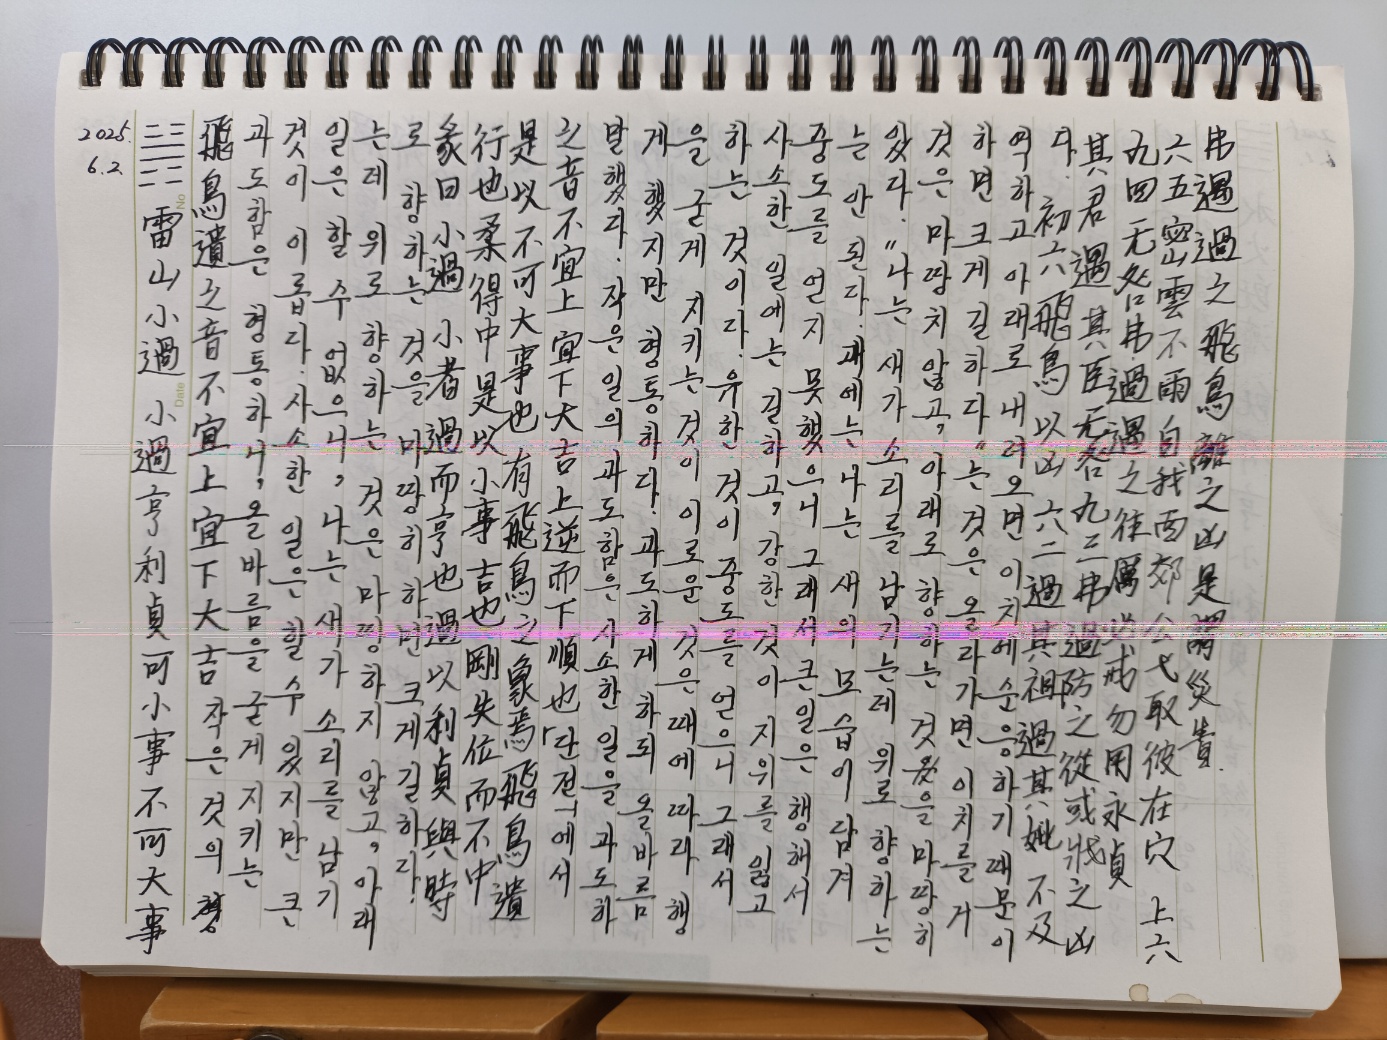 2025.
6.2
䷽ 雷山小過 小過亨利貞可小事不可大事
飛鳥遺之音不宜上宜下大吉 작은 것의
과도함은 형통하니, 올바름을 굳게 지키는
것이 이롭다. 사소한 일은 할 수 있지만 큰
일은 할 수 없으니, 나는 새가 소리를 남기
는데 위로 향하는 것은 마땅하지 않고, 아래
로 향하는 것을 마땅히 하면 크게 길하다.
彖曰 小過 小者過而亨也 過以利貞與時
行也柔得中是以小事吉也 剛失位而不中
是以不可大事也 有飛鳥之象焉飛鳥遺
之音不宜上宜下大吉上逆而下順也「단전」에서
말했다. 작은 일의 과도함은 사소한 일을 과도하
게 했지만 형통하다. 과도하게 하되 올바름
을 굳게 지키는 것이 이로운 것은 때에 따라 행
하는 것이다. 유한 것이 중도를 얻으니 그래서
사소한 일에는 길하고, 강한 것이 지위를 잃고
중도를 얻지 못했으니 그래서 큰일은 행해서
는 안 된다. 괘에는 나는 새의 모습이 담겨
있다. "나는 새가 소리를 남기는데 위로 향하는
것은 마땅치 않고, 아래로 향하는 것을 마땅히
하면 크게 길하다"는 것은 올라가면 이치를 거
역하고 아래로 내려오면 이치에 순응하기 때문이
다. 初六 飛鳥以凶 六二 過其祖遇其妣 不及
其君 遇其臣无咎 九三弗過防之從或戕之凶
九四无咎弗過遇之往厲必戒勿用永貞
六五密雲不雨自我西郊 公弋取彼在穴 上六
弗遇過之飛鳥離之凶是謂災眚.
No
Date